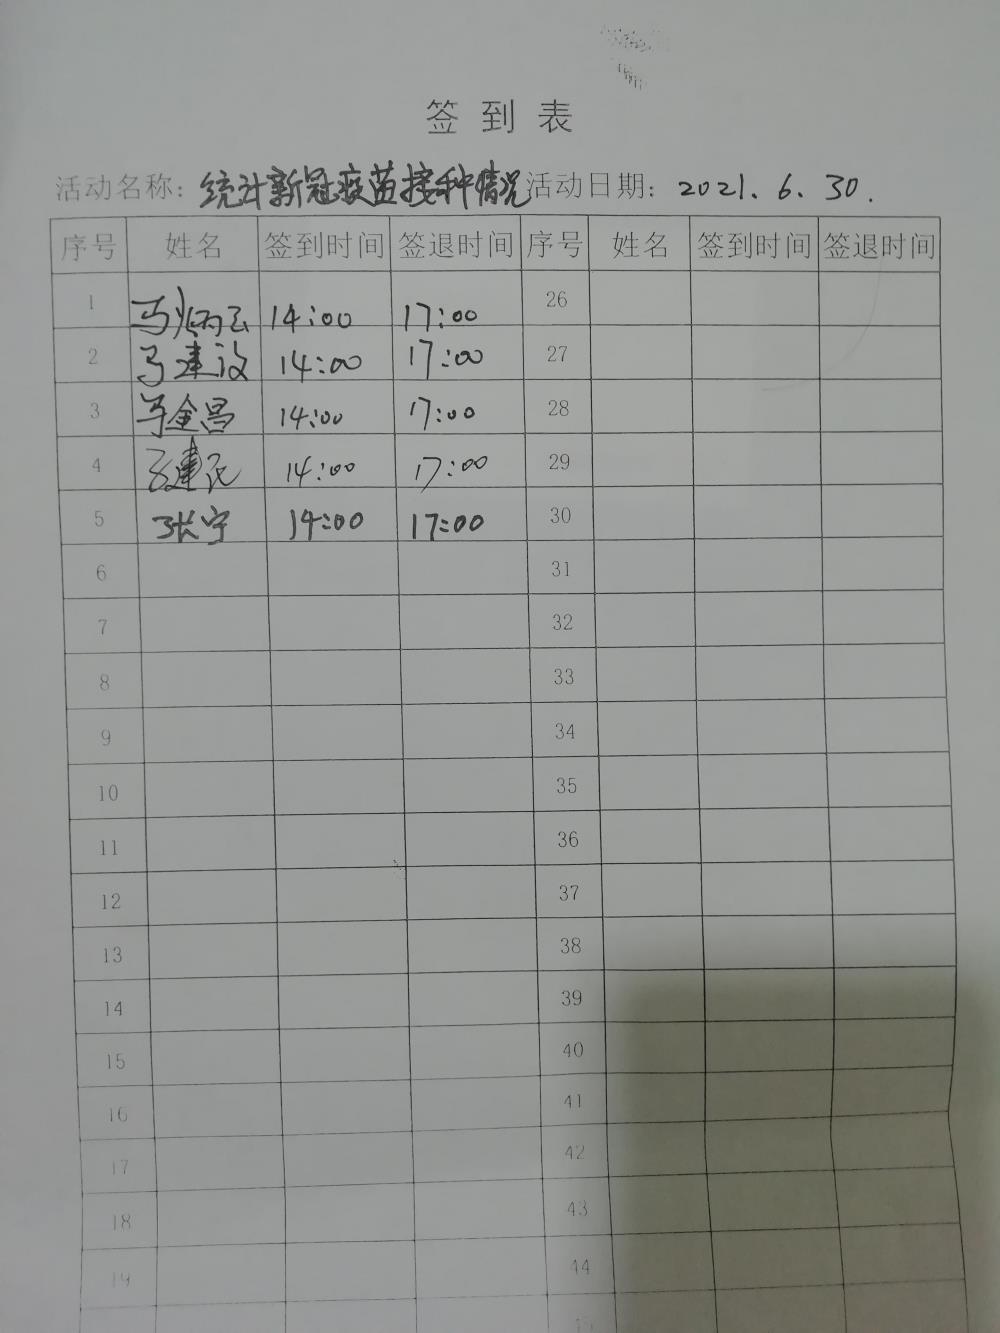 签到表
活动名称：统计新冠疫苗接种情况 活动日期：2021.6.30.
序号 姓名 签到时间 签退时间 序号 姓名 签到时间 签退时间
1 马炳云 14:00 17:00 26
2 马建设 14:00 17:00 27
3 马金昌 14:00 17:00 28
4 14:00 17:00 29
5 张宁 14:00 17:00 30
6 31
7 32
8 33
9 34
10 35
11 36
12 37
13 38
14 39
15 40
16 41
17 42
18 43
19 44